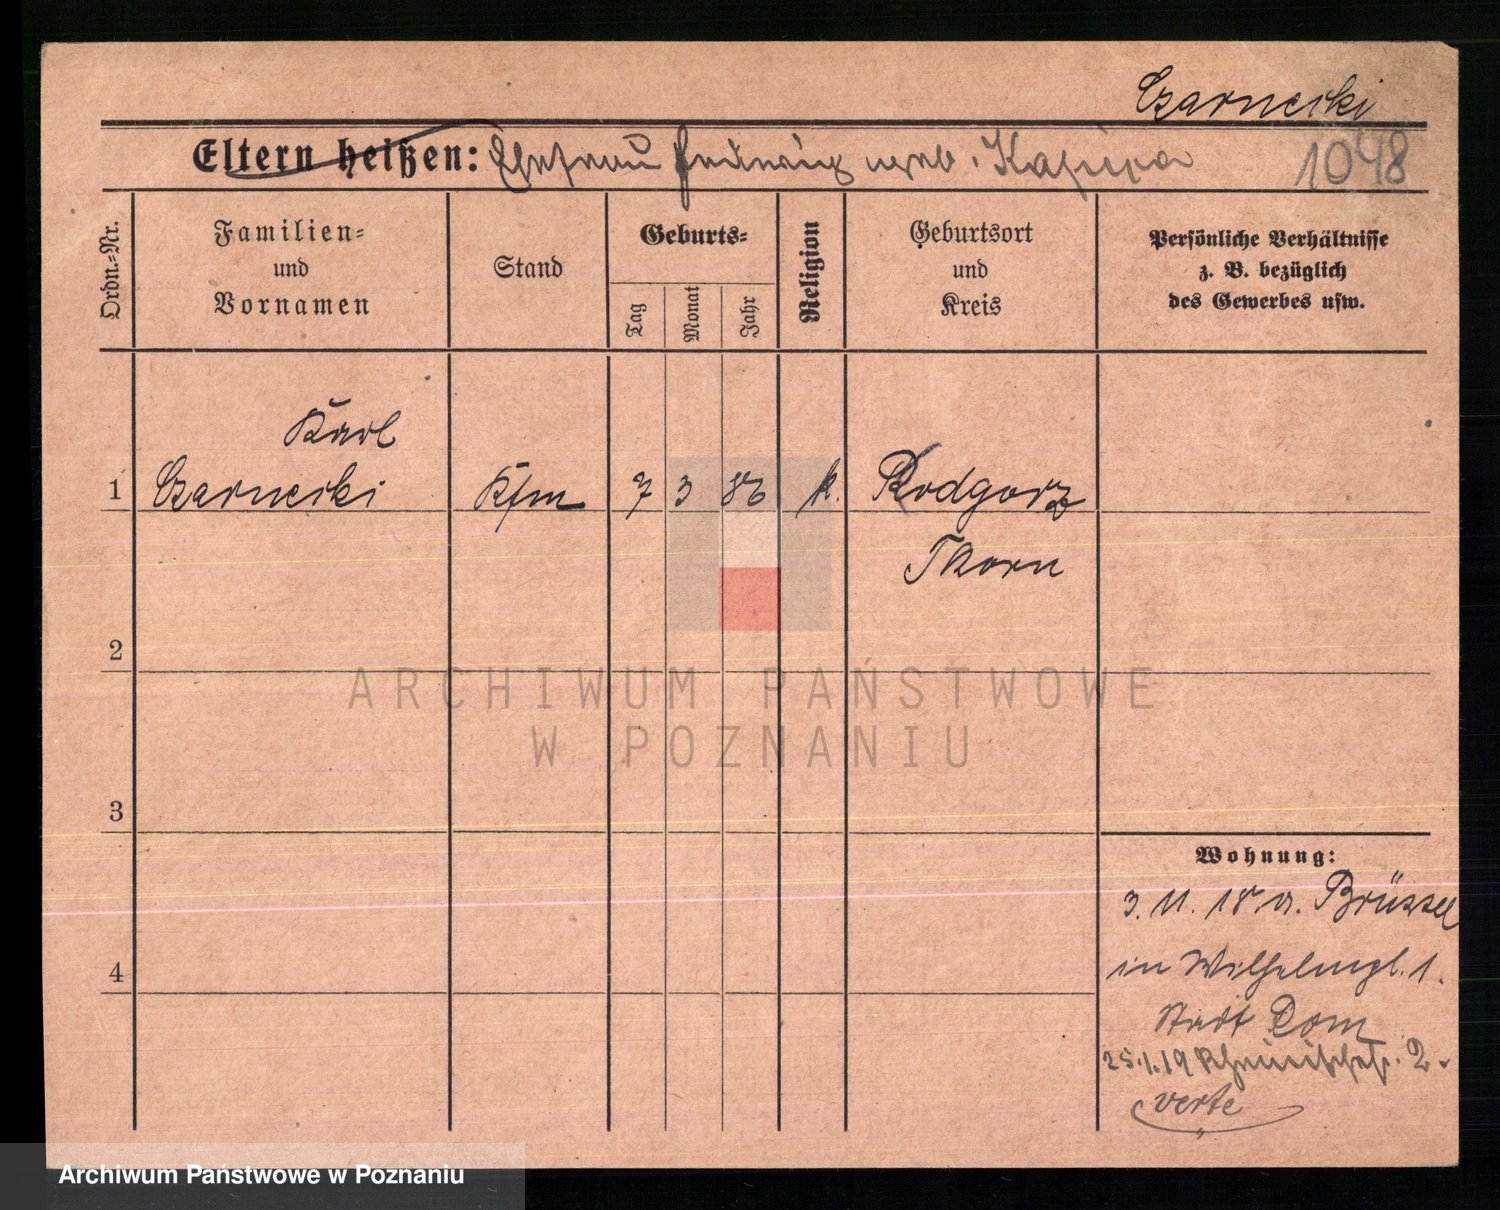 Czarnecki
Eltern heißen: Ehefrau Hedwig verb. Kapczva
1048
Ordn.=Nr.
Familien=
und
Vornamen
Stand
Geburts=
Tag
Monat
Jahr
Religion
Geburtsort
und
Kreis
Persönliche Verhältnisse
z. B. bezüglich
des Gewerbes usw.
Karl
1 Czarnecki Kfm 7 3 86 k. Podgorz
Thorn
2
ARCHIWUM PAŃSTWOWE
W POZNANIU
3
Wohnung:
3. 11. 18. a. Brüssel
in Wilhelmpl. 1.
4
Stadt Dom
25.1.19 2.
verte
Archiwum Państwowe w Poznaniu